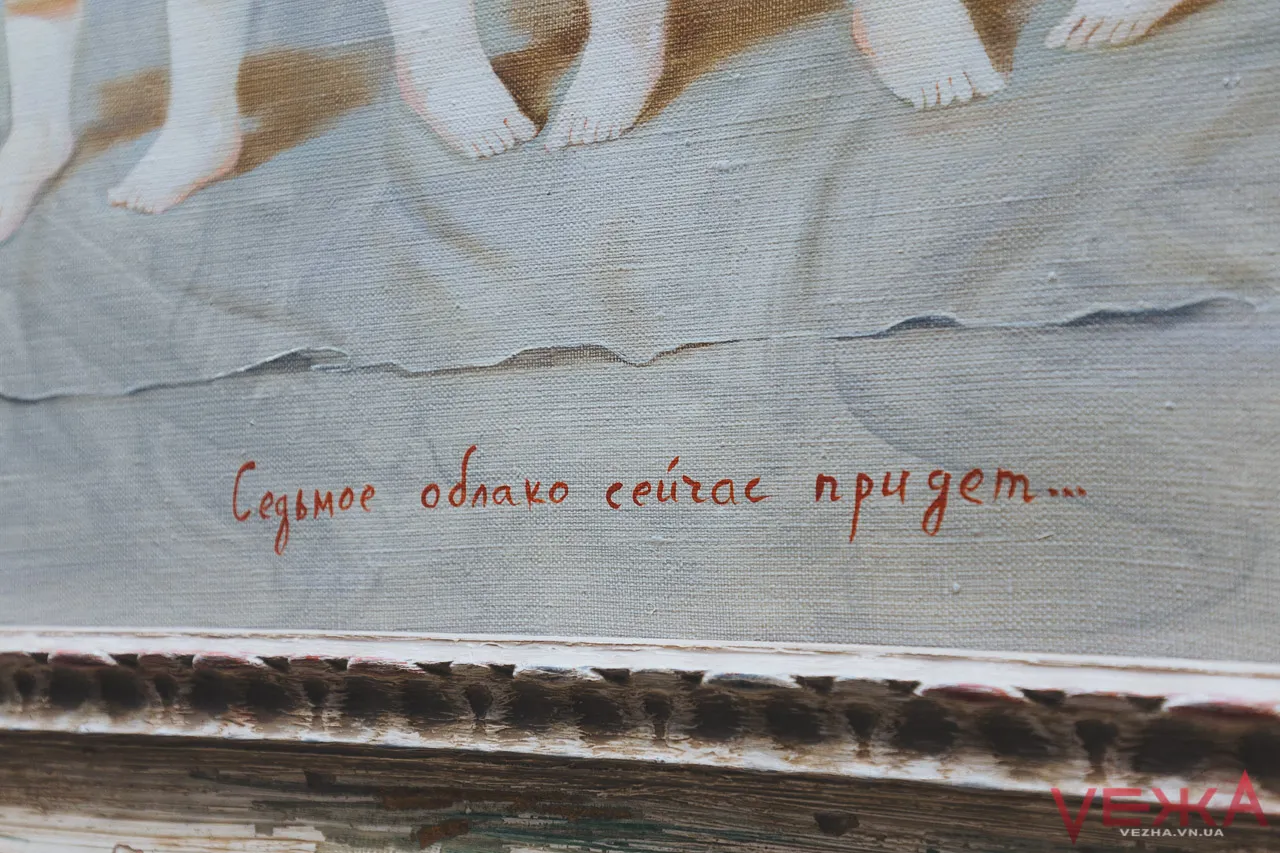 Седьмое облако сейчас придет...
VЕЖА
VEZHA.VN.UA